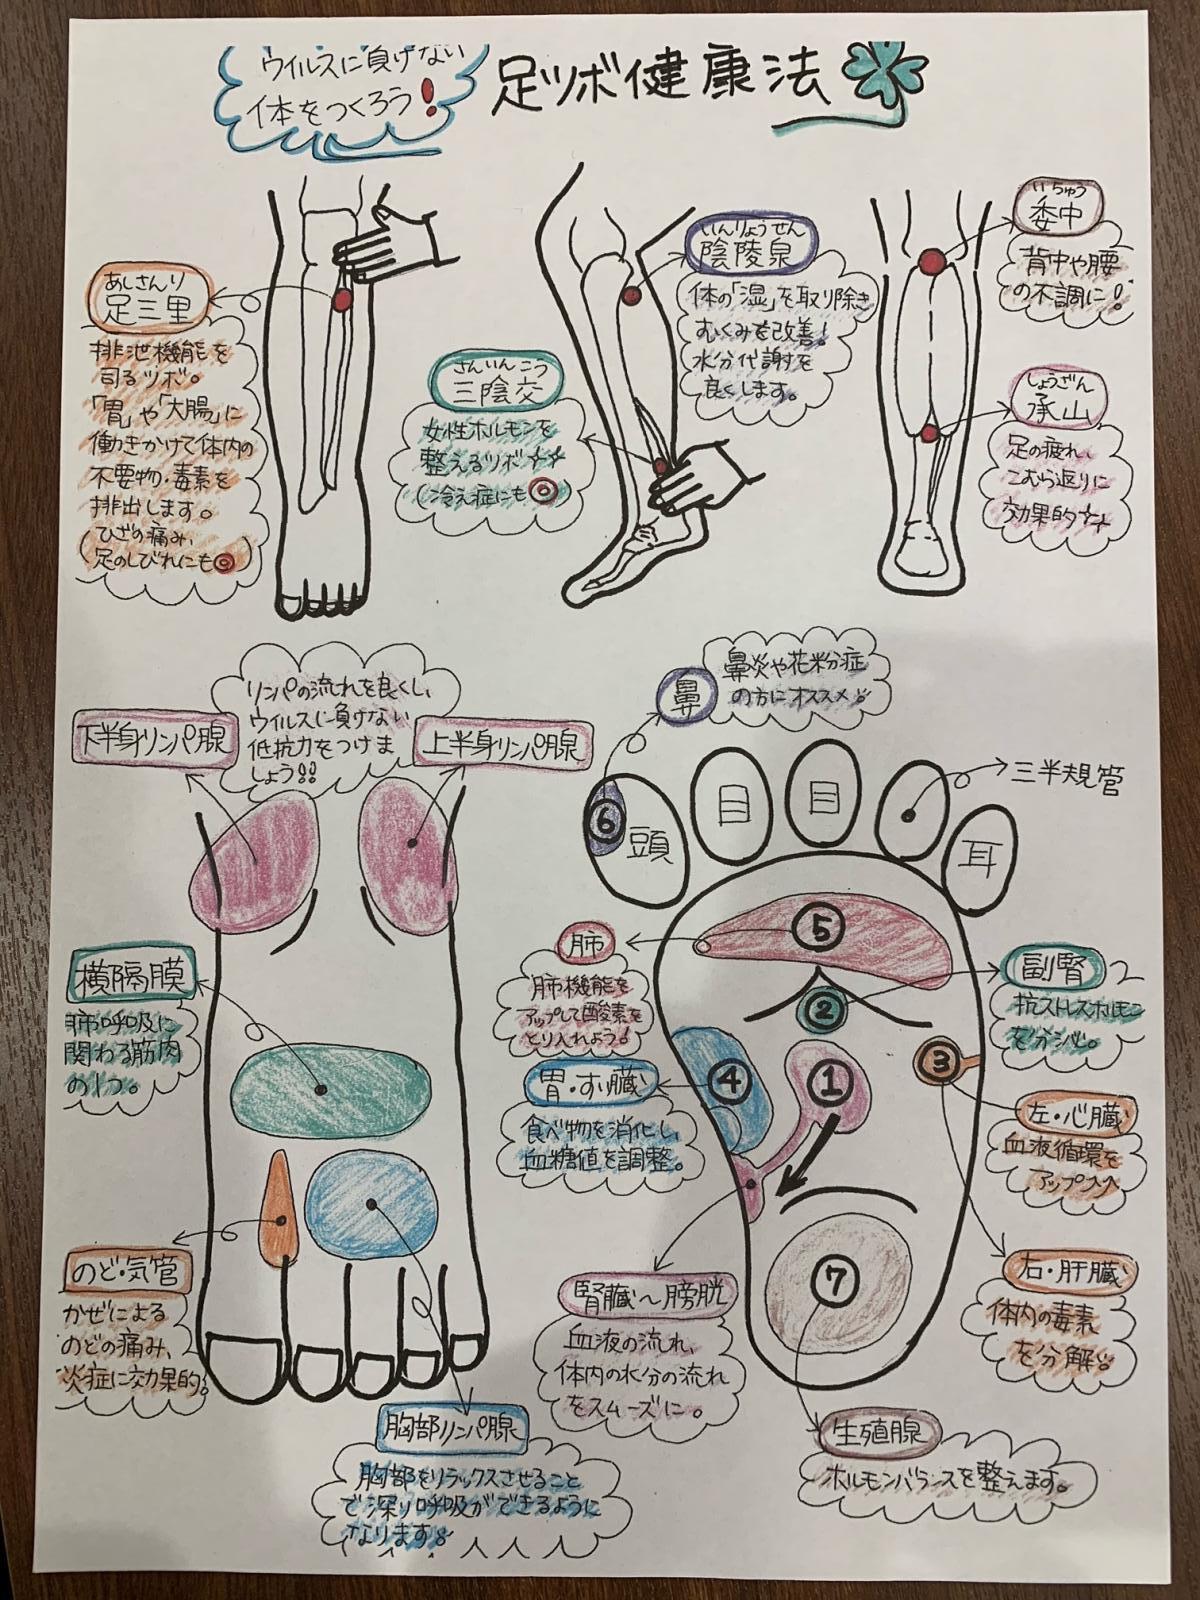 ウイルスに負けない
体をつくろう!
足ツボ健康法
あしさんり
足三里
排泄機能を
司るツボ。
「胃」や「大腸」に
働きかけて体内の
不要物・毒素を
排出します。
ひざの痛み、
足のしびれにも◎
さんいんこう
三陰交
女性ホルモンを
整えるツボ☆☆
(冷え症にも◎
いんりょうせん
陰陵泉
体の「湿」を取り除き
むくみを改善!
水分代謝を
良くします。
いちゅう
委中
背中や腰
の不調に!
しょうざん
承山
足の疲れ、
こむら返りに
効果的☆☆
下半身リンパ腺
リンパの流れを良くし、
ウイルスに負けない
低抗力をつけま
しょう!!
上半身リンパ腺
横隔膜
肺呼吸に
関わる筋肉
の1つ。
のど・気管
かぜによる
のどの痛み、
炎症に効果的。
胸部リンパ腺
胸部をリラックスさせること
で深い呼吸ができるように
なります
鼻
鼻炎や花粉症
の方にオススメ
⑥
頭
目
目
三半規管
耳
肺
肺機能を
アップして酸素を
とり入れよう!
⑤
②
副腎
抗ストレスホルモン
を分泌。
胃・すい臓
食べ物を消化し、
血糖値を調整。
④
①
③
左・心臓
血液循環を
アップ
右・肝臓
体内の毒素
を分解
腎臓〜膀胱
血液の流れ、
体内の水分の流れ
をスムーズに。
⑦
生殖腺
ホルモンバランスを整えます。